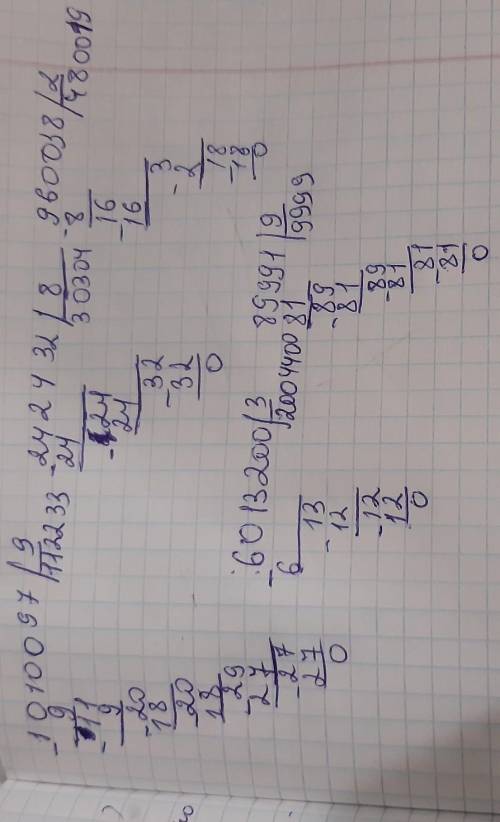 -1010097 | 9
9
112233
-11
9
-20
18
-20
18
-29
27
-27
27
0
-242432 | 8
24
30304
-24
24
-32
32
0
-960038 | 2
8
480019
-16
16
-3
2
-18
18
0
-6013200 | 3
6
2004400
-13
12
-12
12
0
89991 | 9
81
9999
-89
81
-89
81
-81
81
0